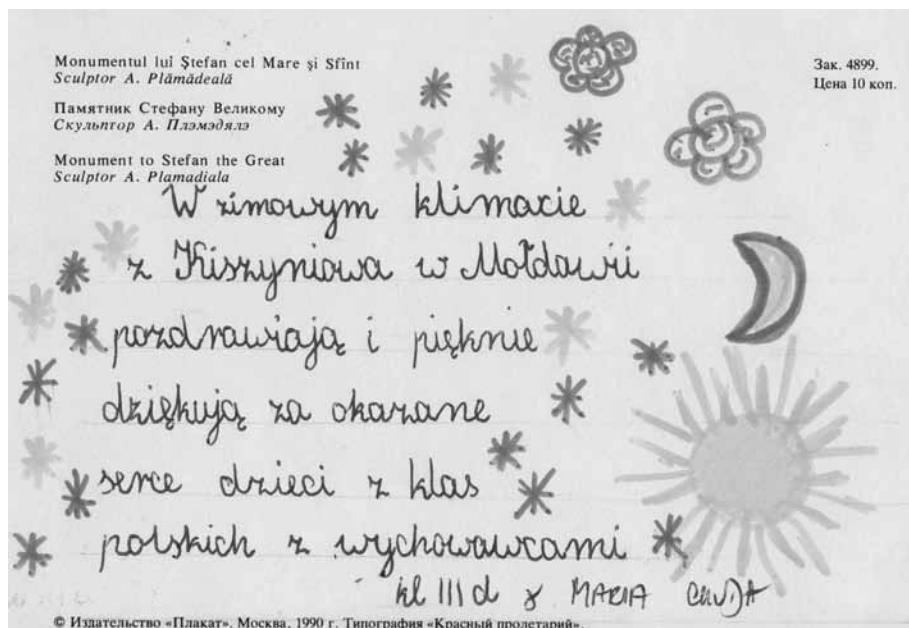 Monumentul lui Ştefan cel Mare şi Sfînt
Sculptor A. Plămădeală
Памятник Стефану Великому
Скульптор А. Плэмэдялэ
Monument to Stefan the Great
Sculptor A. Plamadiala
Зак. 4899.
Цена 10 коп.
W zimowym klimacie
z Kiszyniowa w Mołdawii
pozdrawiają i pięknie
dziękują za okazane
serce dzieci z klas
polskich z wychowawcami
kl III d MARIA
© Издательство «Плакат». Москва. 1990 г. Типография «Красный пролетарий».